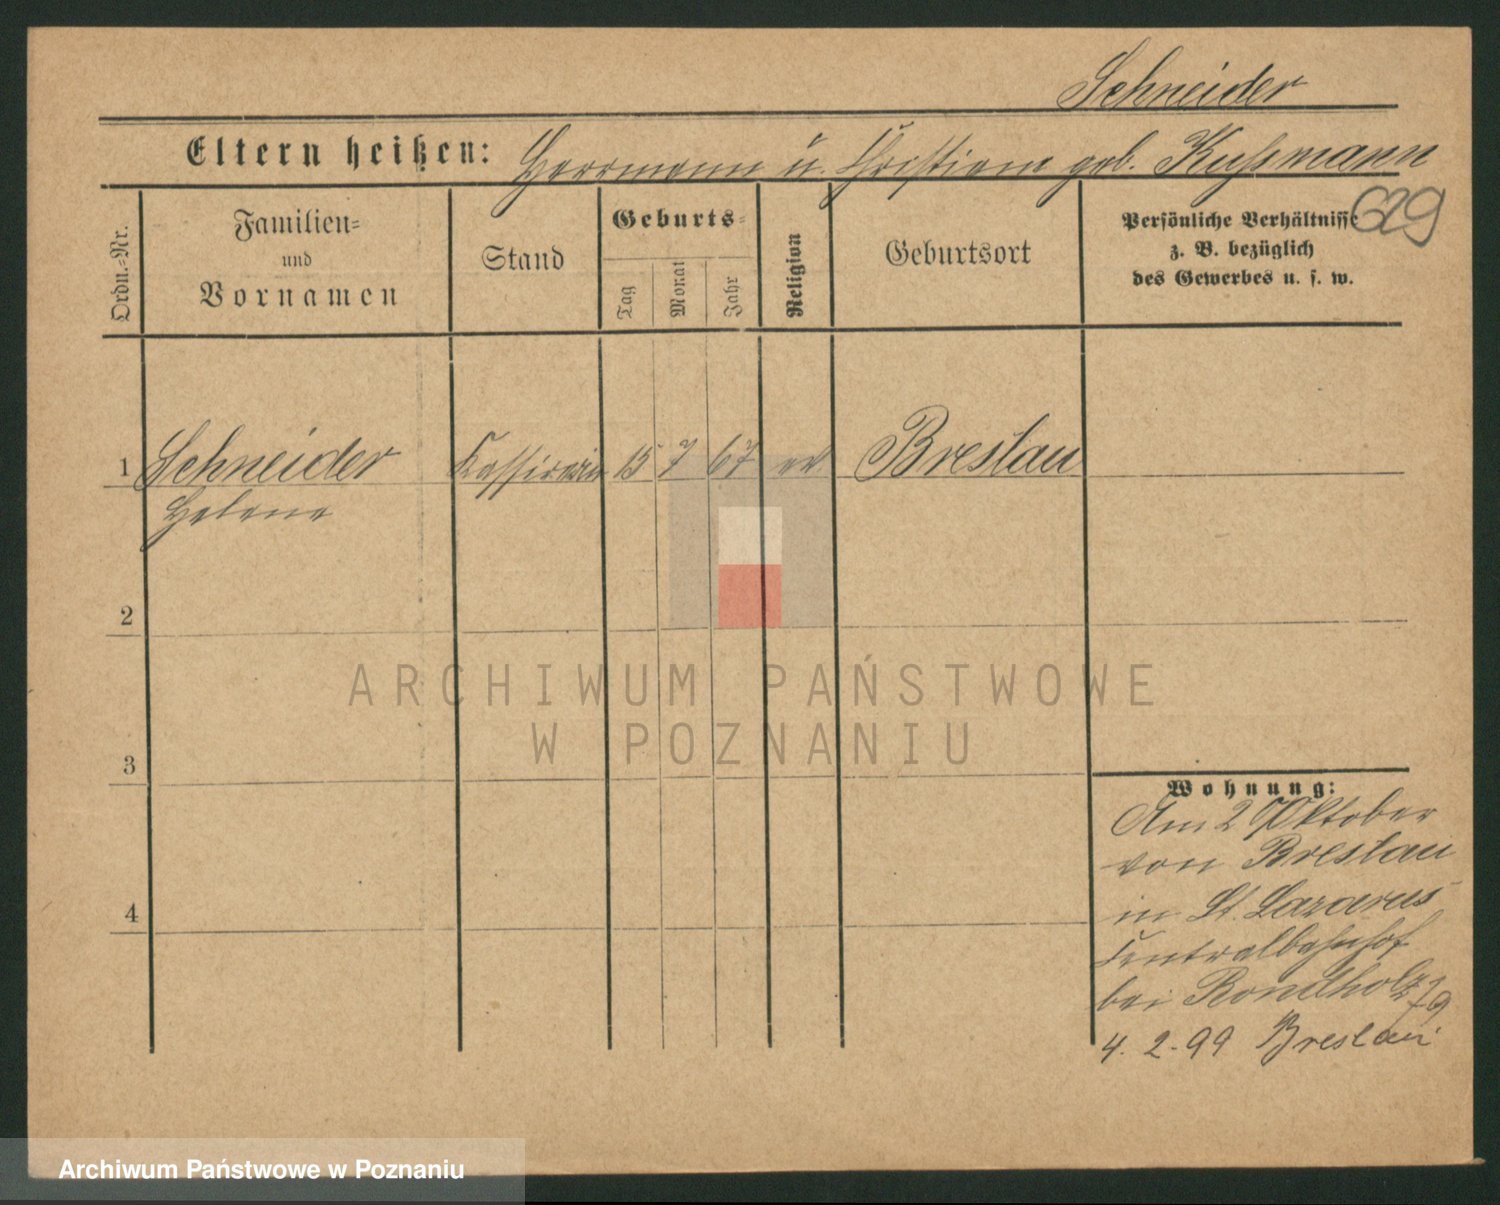 Schneider
Eltern heißen: Herrmann u. Christiane geb. Kußmann
629
Ordn.-Nr.
Familien-
und
Vornamen
Stand
Geburts-
Tag
Monat
Jahr
Religion
Geburtsort
Persönliche Verhältnisse
z. B. bezüglich
des Gewerbes u. s. w.
1 Schneider Kassirerin 15 7 67 ev Breslau
Helene
2
3
4
Wohnung:
Am 2 Oktober
von Breslau
in St. Lazarus
Centralbahnhof
bei Rondholz
4. 2. 99 Breslau
ARCHIWUM PAŃSTWOWE
W POZNANIU
Archiwum Państwowe w Poznaniu